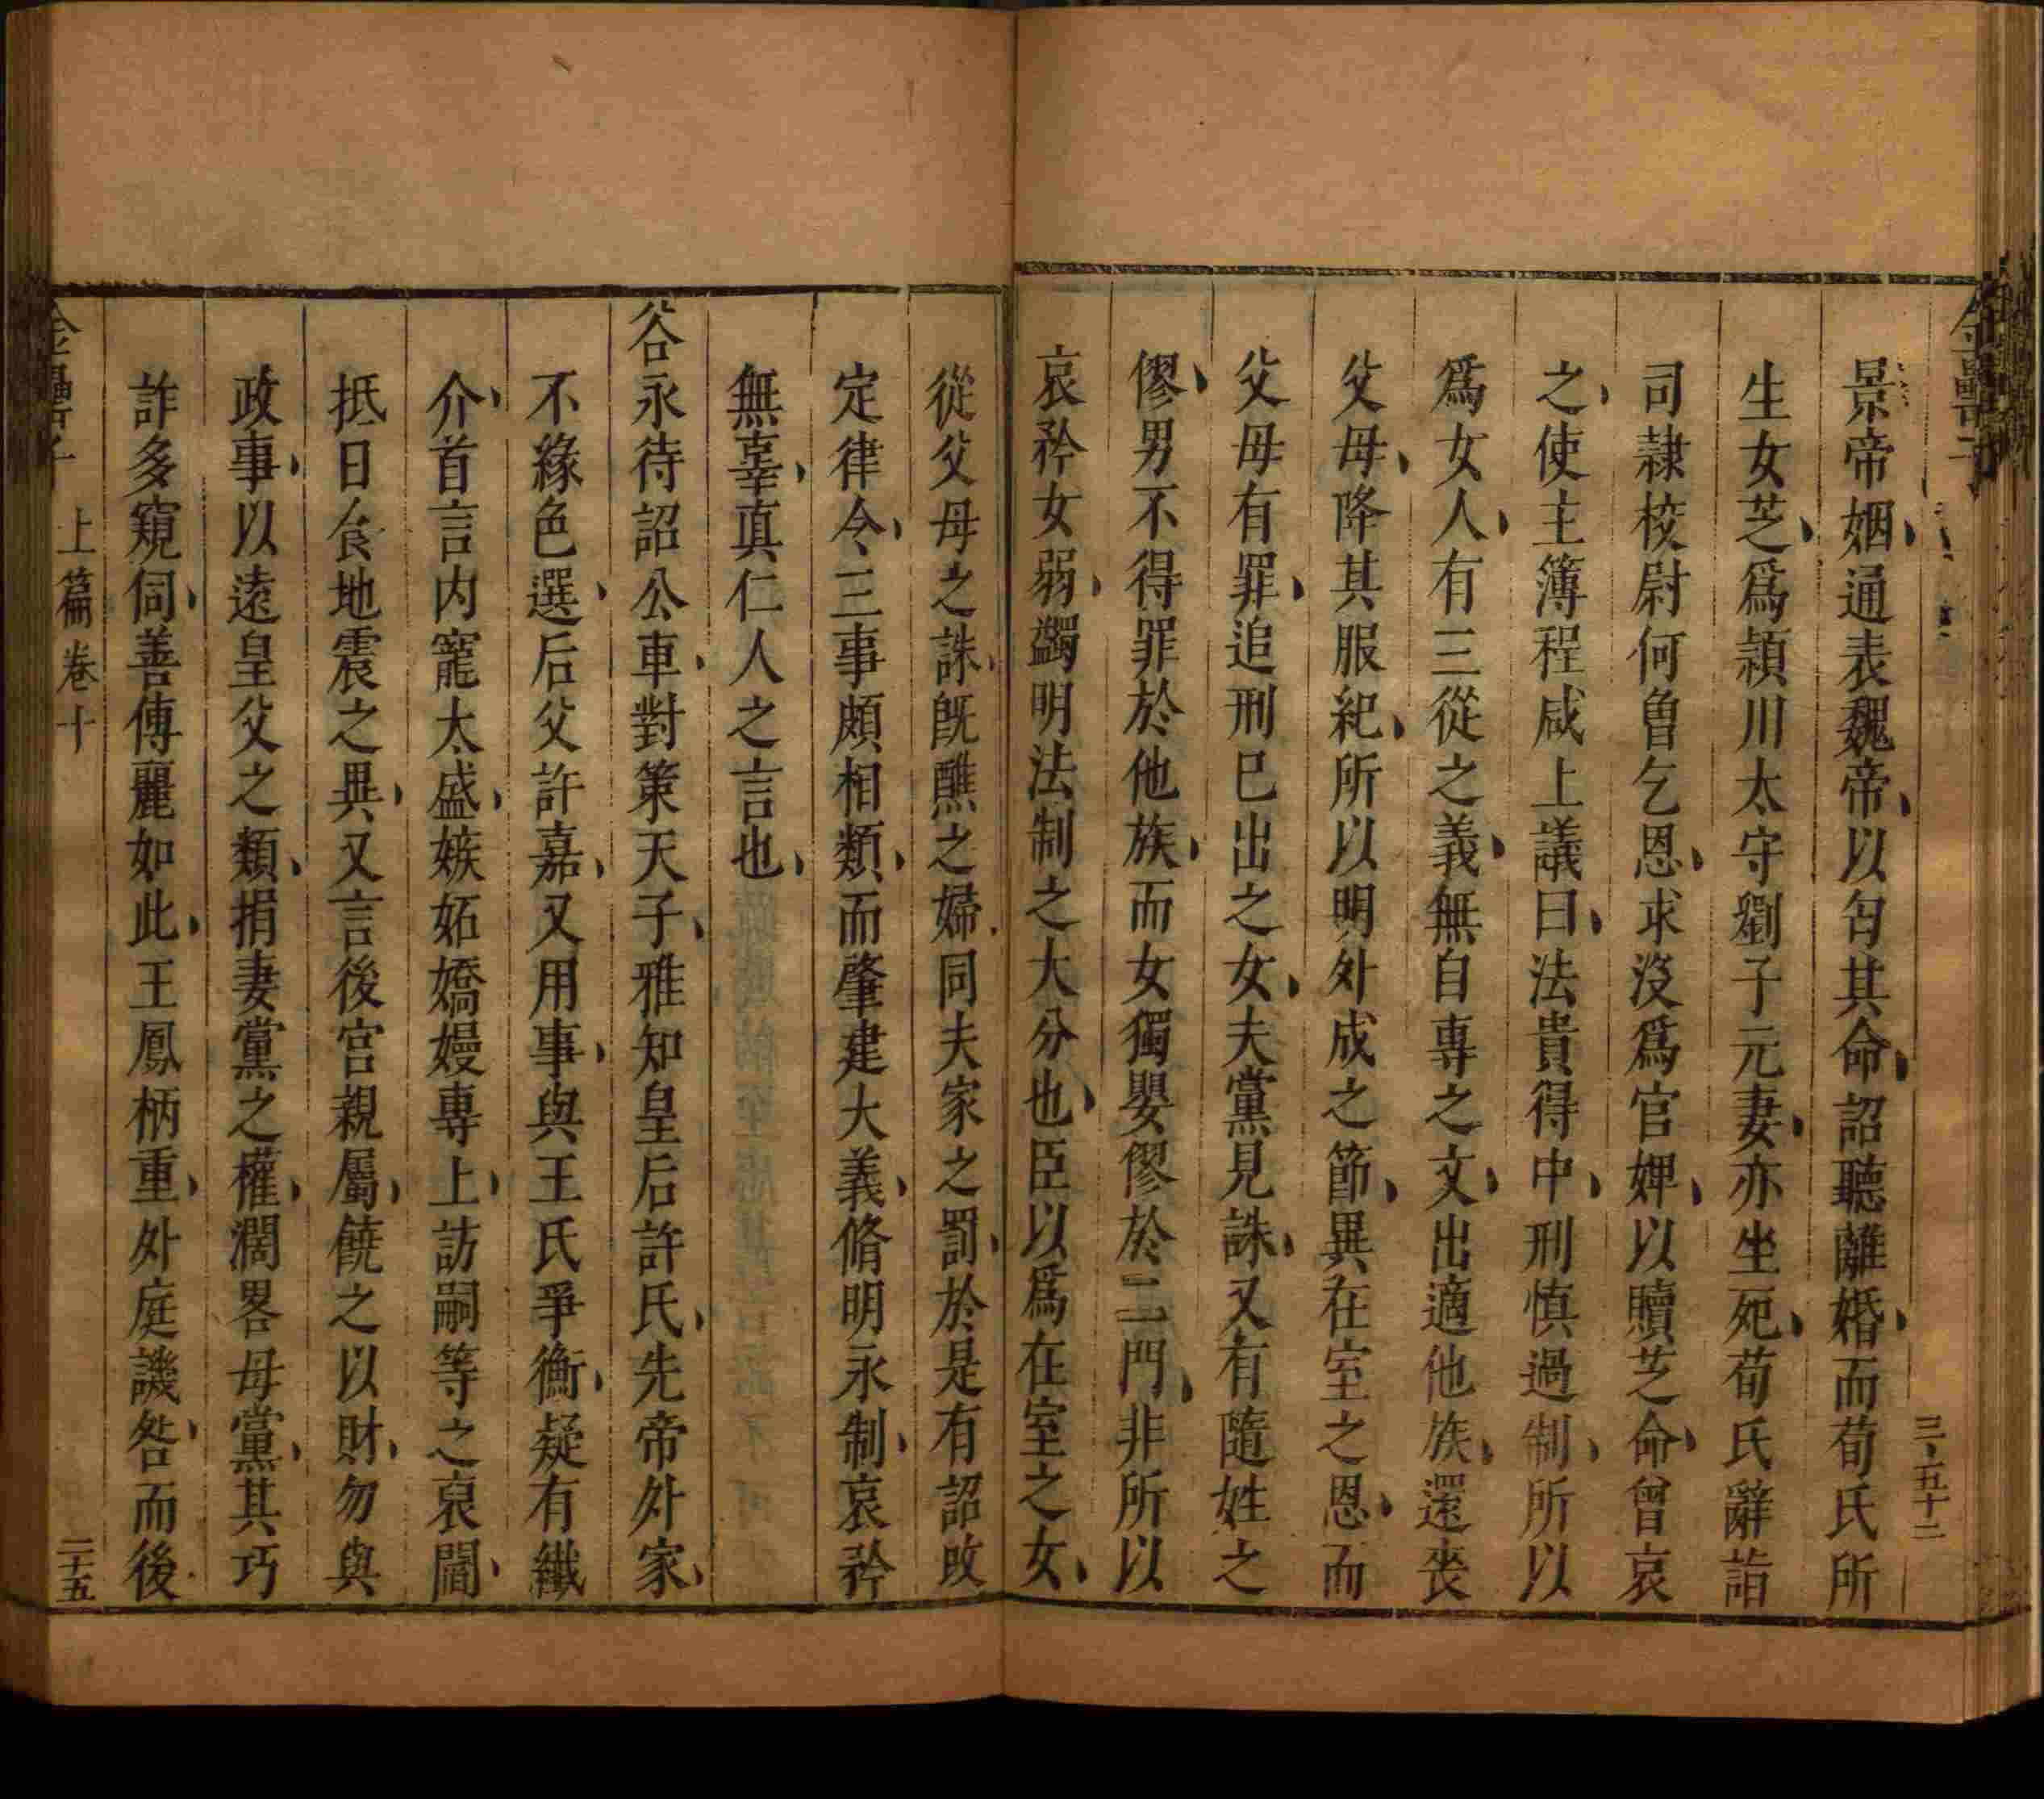 金罍子
三五十二
景帝姻、通表魏帝、以匄其命、詔聽離婚、而荀氏所
生女芝、爲潁川太守劉子元妻、亦坐死、荀氏辭詣
司隷校尉何曾乞恩、求沒爲官婢、以贖芝命、曾哀
之、使主簿程咸上議曰、法貴得中、刑慎過制、所以
爲女人、有三從之義、無自專之文、出適他族、還喪
父母、降其服紀、所以明外成之節、異在室之恩、而
父母有罪、追刑已出之女、夫黨見誅、又有隨姓之
僇、男不得罪於他族、而女獨嬰僇於二門、非所以
哀矜女弱、蠲明法制之大分也、臣以爲在室之女、
從父母之誅、旣醮之婦、同夫家之罰、於是有詔改
定律令、三事頗相類、而肇建大義、脩明永制、哀矜
無辜、眞仁人之言也、
谷永待詔公車、對策天子、雅知皇后許氏、先帝外家、
不緣色選、后父許嘉、又用事、與王氏爭衡、疑有纖
介、首言内寵太盛、嫉妬嬌嫚專上、訪嗣等之哀閻、
抵日食地震之異、又言後宮親屬、饒之以財、勿與
政事、以遠皇父之類、損妻黨之權、濶畧母黨、其巧
詐多窺伺、善傅麗如此、王鳳柄重、外庭譏咎、而後
金罍子
上篇卷十
二十五